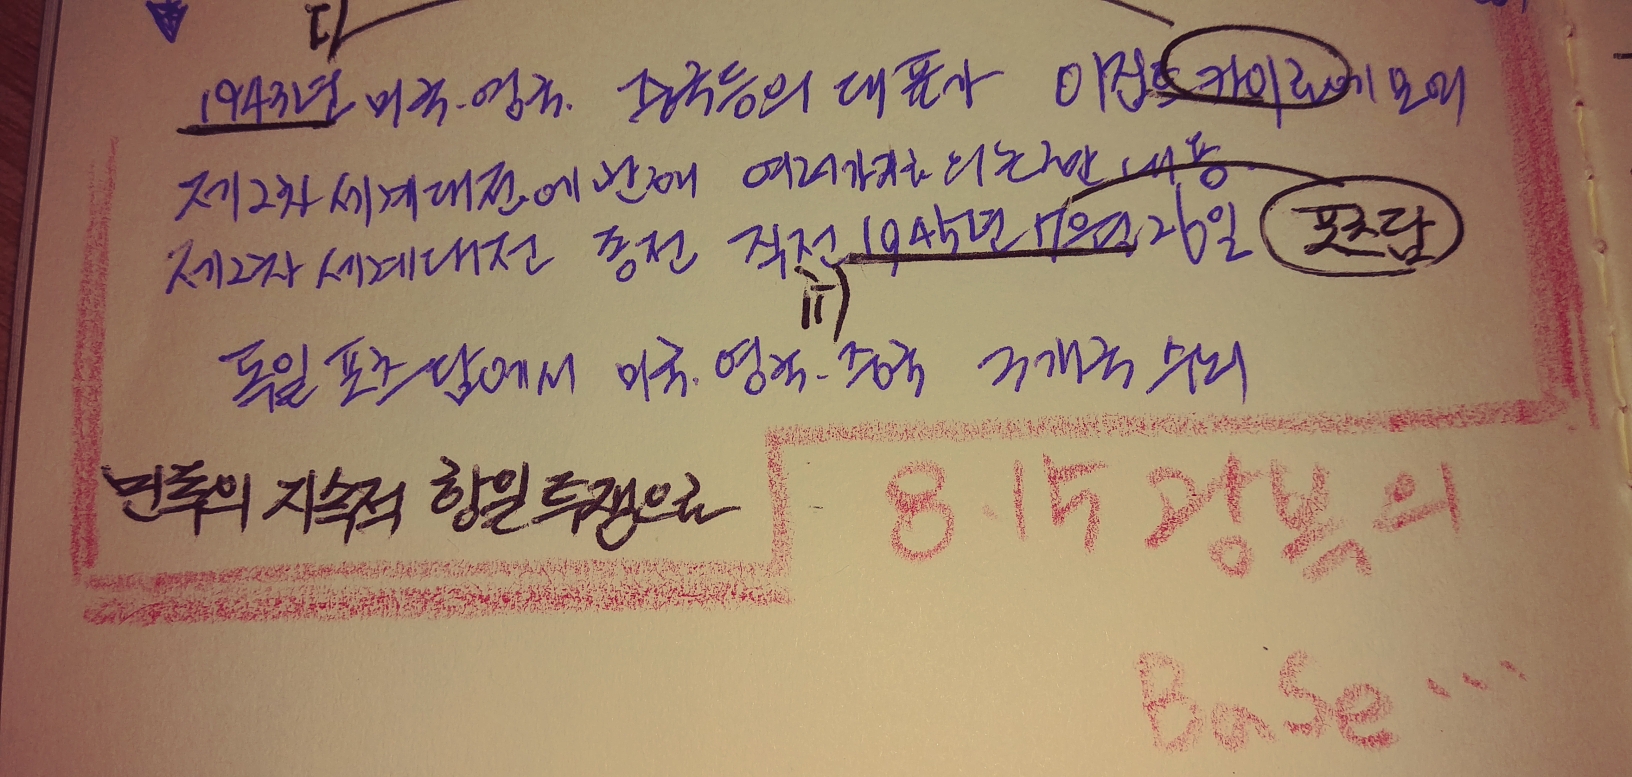 I)
1943년 미국·영국. 중국등의 대표가 이집트 카이로에 모여
제2차 세계대전에 관해 여러가지 논의 내용
제2차 세계대전 종전 직전 1945년 7월 26일 포츠담
II)
독일 포츠담에서 미국. 영국·중국 3개국 수뇌
민족의 지속적 항일투쟁으로
8·15 광복의
Base...